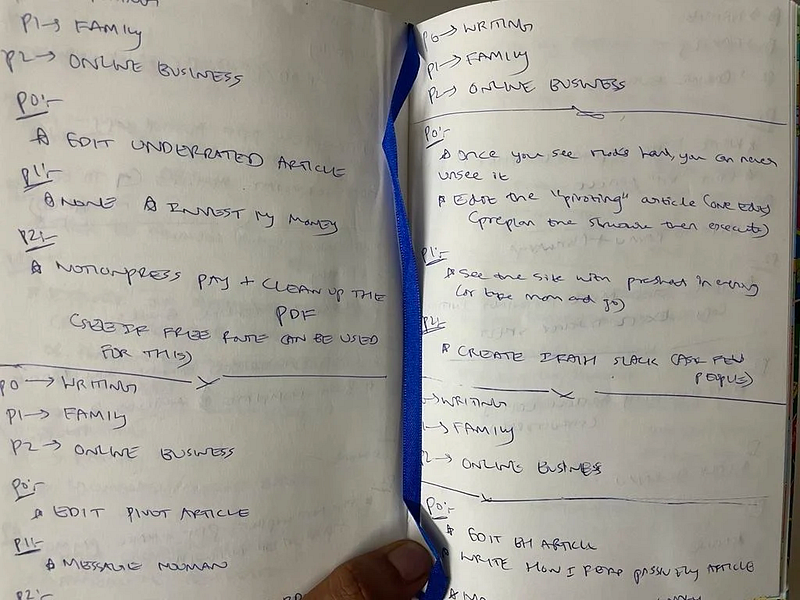 P1 → FAMILY
P2 → ONLINE BUSINESS
P0:-
EDIT UNDERRATED ARTICLE
P1:-
NONE INVEST MY MONEY
P2:-
NOTIONPRESS PAY + CLEAN UP THE
PDF
(SEE IF FREE ROUTE CAN BE USED
FOR THIS)
P0 → WRITING
P1 → FAMILY
P2 → ONLINE BUSINESS
P0:-
EDIT PIVOT ARTICLE
P1:-
MESSAGE NOUMAN
P2:-
P0 → WRITING
P1 → FAMILY
P2 → ONLINE BUSINESS
P0:-
Once you see, you can never
unsee it
Edit the "pivoting" article (one edit)
(preplan the structure then execute)
P1:-
See the site with in evening
(or take mom and go)
P2:-
CREATE SLACK (ASK FEW
PEOPLE)
→ WRITING
→ FAMILY
→ ONLINE BUSINESS
P0:-
EDIT BH ARTICLE
WRITE HOW I ARTICLE